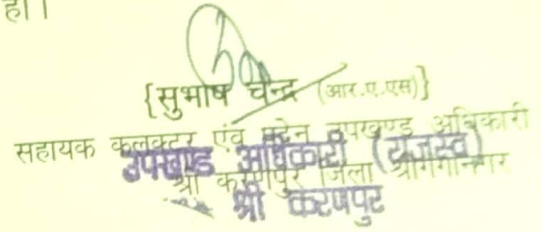 हो।
{सुभाष चन्द्र (आर.ए.एस)}
सहायक कलक्टर एंव पदेन उपखण्ड अधिकारी
उपखण्ड अधिकारी (राजस्व)
श्री करणपुर जिला श्रीगंगानगर
श्री करणपुर